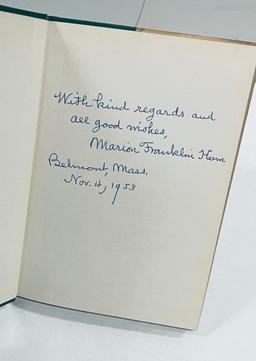 With kind regards and
all good wishes,
Marion Franklin Ham
Belmont, Mass.
Nov. 4, 1953